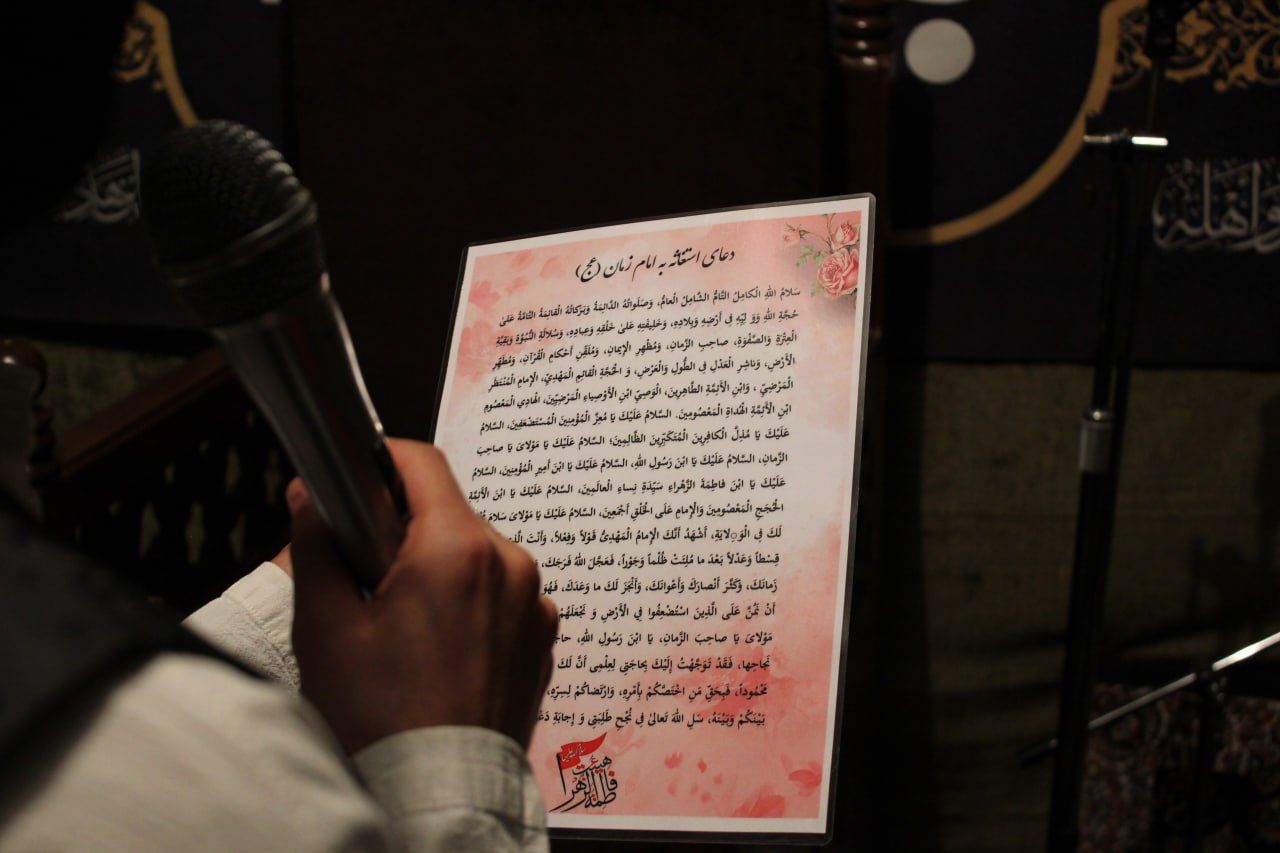 دعای استغاثه به امام زمان (عج)
سَلامُ اللهِ الْکامِلُ التّامُّ الشّامِلُ الْعامُّ، وَصَلَواتُهُ الدّائِمَةُ وَبَرَکاتُهُ الْقائِمَةُ التّامَّةُ عَلیٰ
حُجَّةِ اللهِ وَوَ لِیِّهِ فِی أَرْضِهِ وَبِلادِهِ، وَخَلِیفَتِهِ عَلیٰ خَلْقِهِ وَعِبادِهِ، وَسُلالَةِ النُّبُوَّةِ وَبَقِیَّةِ
الْعِتْرَةِ وَالصَّفْوَةِ، صاحِبِ الزَّمانِ، وَمُظْهِرِ الْإِیمانِ، وَمُلَقِّنِ أَحْکامِ الْقُرْآنِ، وَمُطَهِّرِ
الْأَرْضِ، وَناشِرِ الْعَدْلِ فِی الطُّولِ وَالْعَرْضِ، وَ الْحُجَّةِ الْقائِمِ الْمَهْدِیِّ، الْإِمامِ الْمُنْتَظَرِ
الْمَرْضِیِّ ، وَابْنِ الْأَئِمَّةِ الطّاهِرِینَ، الْوَصِیِّ ابْنِ الْأَوْصِیاءِ الْمَرْضِیِّینَ، الْهادِی الْمَعْصُومِ
ابْنِ الْأَئِمَّةِ الْهُداةِ الْمَعْصُومِینَ. السَّلامُ عَلَیْكَ یَا مُعِزَّ الْمُؤْمِنِینَ الْمُسْتَضْعَفِینَ، السَّلامُ
عَلَیْكَ یَا مُذِلَّ الْکافِرِینَ الْمُتَکَبِّرِینَ الظّالِمِینَ؛ السَّلامُ عَلَیْكَ یَا مَوْلایَ یَا صاحِبَ
الزَّمانِ، السَّلامُ عَلَیْكَ یَا ابْنَ رَسُولِ اللهِ، السَّلامُ عَلَیْكَ یَا ابْنَ أَمِیرِ الْمُؤْمِنِینَ، السَّلامُ
عَلَیْكَ یَا ابْنَ فاطِمَةَ الزَّهْراءِ سَیِّدَةِ نِساءِ الْعالَمِینَ، السَّلامُ عَلَیْكَ یَا ابْنَ الْأَئِمَّةِ
الْحُجَجِ الْمَعْصُومِینَ وَالْإِمامِ عَلَی الْخَلْقِ أَجْمَعِینَ، السَّلامُ عَلَیْكَ یَا مَوْلایَ سَلامَ
لَكَ فِی الْوَِلایَةِ، أَشْهَدُ أَنَّكَ الْإِمامُ الْمَهْدِیُّ قَوْلاً وَفِعْلاً، وَأَنْتَ
قِسْطاً وَعَدْلاً بَعْدَ ما مُلِئَتْ ظُلْماً وَجَوْراً، فَعَجَّلَ اللهُ فَرَجَكَ،
زَمانَكَ، وَکَثَّرَ أَنْصارَكَ وَأَعْوانَكَ، وَأَنْجَزَ لَكَ ما وَعَدَكَ، فَهُوَ
أَنْ نَمُنَّ عَلَی الَّذِینَ اسْتُضْعِفُوا فِی الْأَرْضِ وَ نَجْعَلَهُمْ
مَوْلایَ یَا صاحِبَ الزَّمانِ، یَا ابْنَ رَسُولِ اللهِ،
نَجاحِها، فَقَدْ تَوَجَّهْتُ إِلَیْكَ بِحاجَتِی لِعِلْمِی أَنَّ لَكَ
مَحْمُوداً، فَبِحَقِّ مَنِ اخْتَصَّکُمْ بِأَمْرِهِ، وَارْتَضاکُمْ لِسِرِّهِ،
بَیْنَکُمْ وَبَیْنَهُ، سَلِ اللهَ تَعالیٰ فِی نُجْحِ طَلِبَتِی وَ إِجابَةِ
هیئت
فاطمة الزهرا